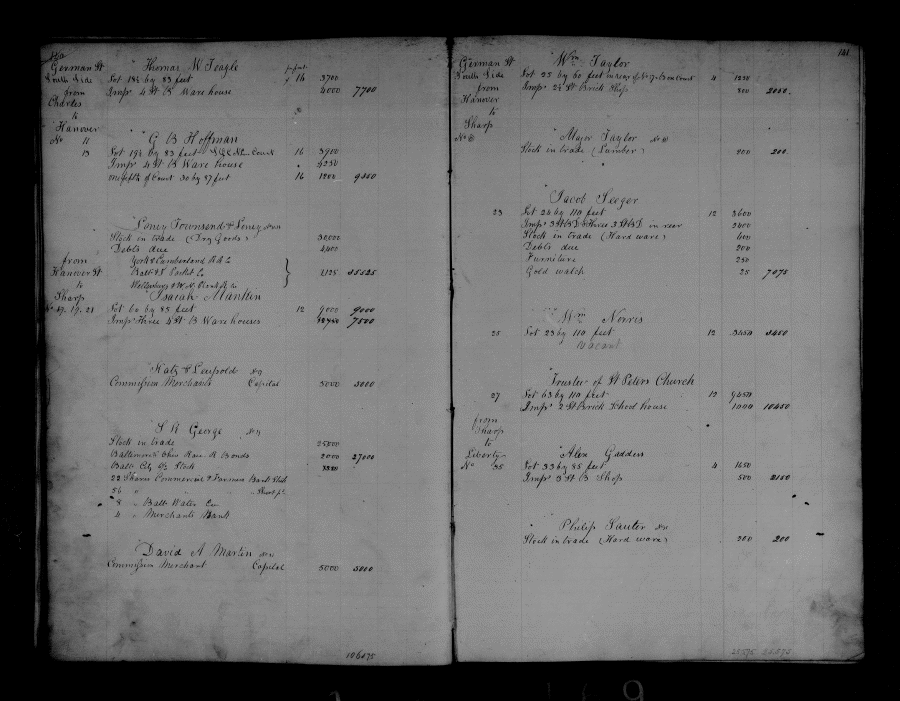 140
German St Thomas W Teagle pr foot
South Side Lot 18½ by 83 feet 16 3700
from Imp 4 St B Warehouse 4000 7700
Charles
to
Hanover
No 11 G B Hoffman
13 Lot 19½ by 83 feet 16 3900
Imp 4 St B Ware house 4250
of Court 30 by 87 feet 16 1200
Loney Townsend & Loney
Stock in trade (Dry Goods) 30,000
Debts due 4,400
from York & Cumberland R R Co
Hanover St Balt & Co 1,125 35525
to
Sharp Isaiah Mankin
No 17. 19. 21 Lot 60 by 85 feet 12 9000 9000
Imp Three 4 St B Ware houses 7500
Katz & Leupold No 9
Commission Merchants Capital 5000 5000
S K George No 11
Stock in trade 25000
Baltimore & Ohio Rail R Bonds 2000 27000
Balt City Stock
22 Shares Commercial & Farmers Bank Stock
56 " "
8 " Balt Water Co
4 " Merchants Bank
David A Martin
Commission Merchant Capital 5000 5000
106875
141
German St Wm Taylor
South Side Lot 25 by 60 feet in rear 4 1250
from Imp 2½ St Brick Shop 800 2050
Hanover
to
Sharp
Major Taylor
Stock in trade (Lumber) 200 200
Jacob Seeger
23 Lot 26 by 110 feet 12 3600
Imp 3 St B D & Three 3 St B D in rear 2400
Stock in trade (Hard ware) 600
Debts due 200
Furniture 250
Gold watch 25 7075
Wm Norris
25 Lot 23 by 110 feet 12 3450 3450
Vacant
Trustees of St Peters Church
27 Lot 63 by 110 feet 9450
Imp 2 St Brick School house 1000 10450
from
Sharp
to
Liberty Alex Gaddess
No 35 Lot 33 by 85 feet 4 1650
Imp 3 St B Shop 500 2150
Philip Sauter
Stock in trade (Hard ware) 200 200